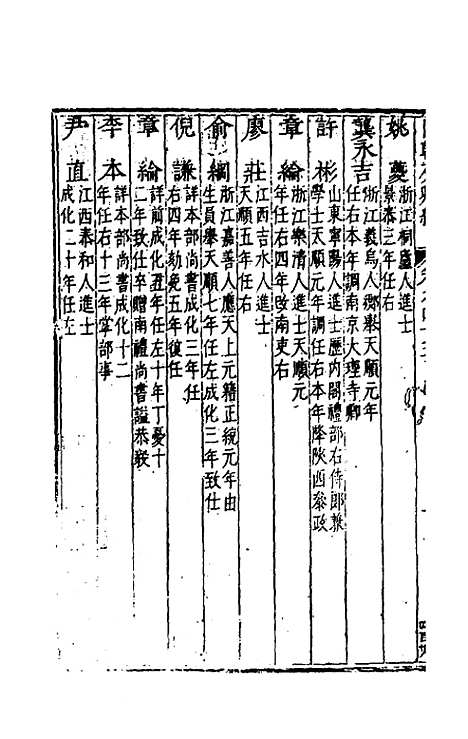 姚夔
浙江桐廬人進士
景泰三年任右
龔永吉
浙江義烏人鄉舉天順元年
任右本年調南京大理寺卿
許彬
山東寧陽人進士歷内閣禮部右侍郎兼
學士天順元年調任右本年降陝西叅政
章綸
浙江樂清人進士天順元
年任右四年改南吏右
廖莊
江西吉水人進士
天順五年任右
俞綱
浙江嘉善人應天上元籍正統元年由
生員舉天順七年任左成化三年致仕
倪謙
詳本部尚書成化三年任
右四年劾免五年復任
章綸
詳前成化五年任左十年丁憂十
二年致仕卒贈南禮尚書謚恭毅
李本
詳本部尚書成化十二
年任右十三年掌部事
尹直
江西泰和人進士
成化二十年任左